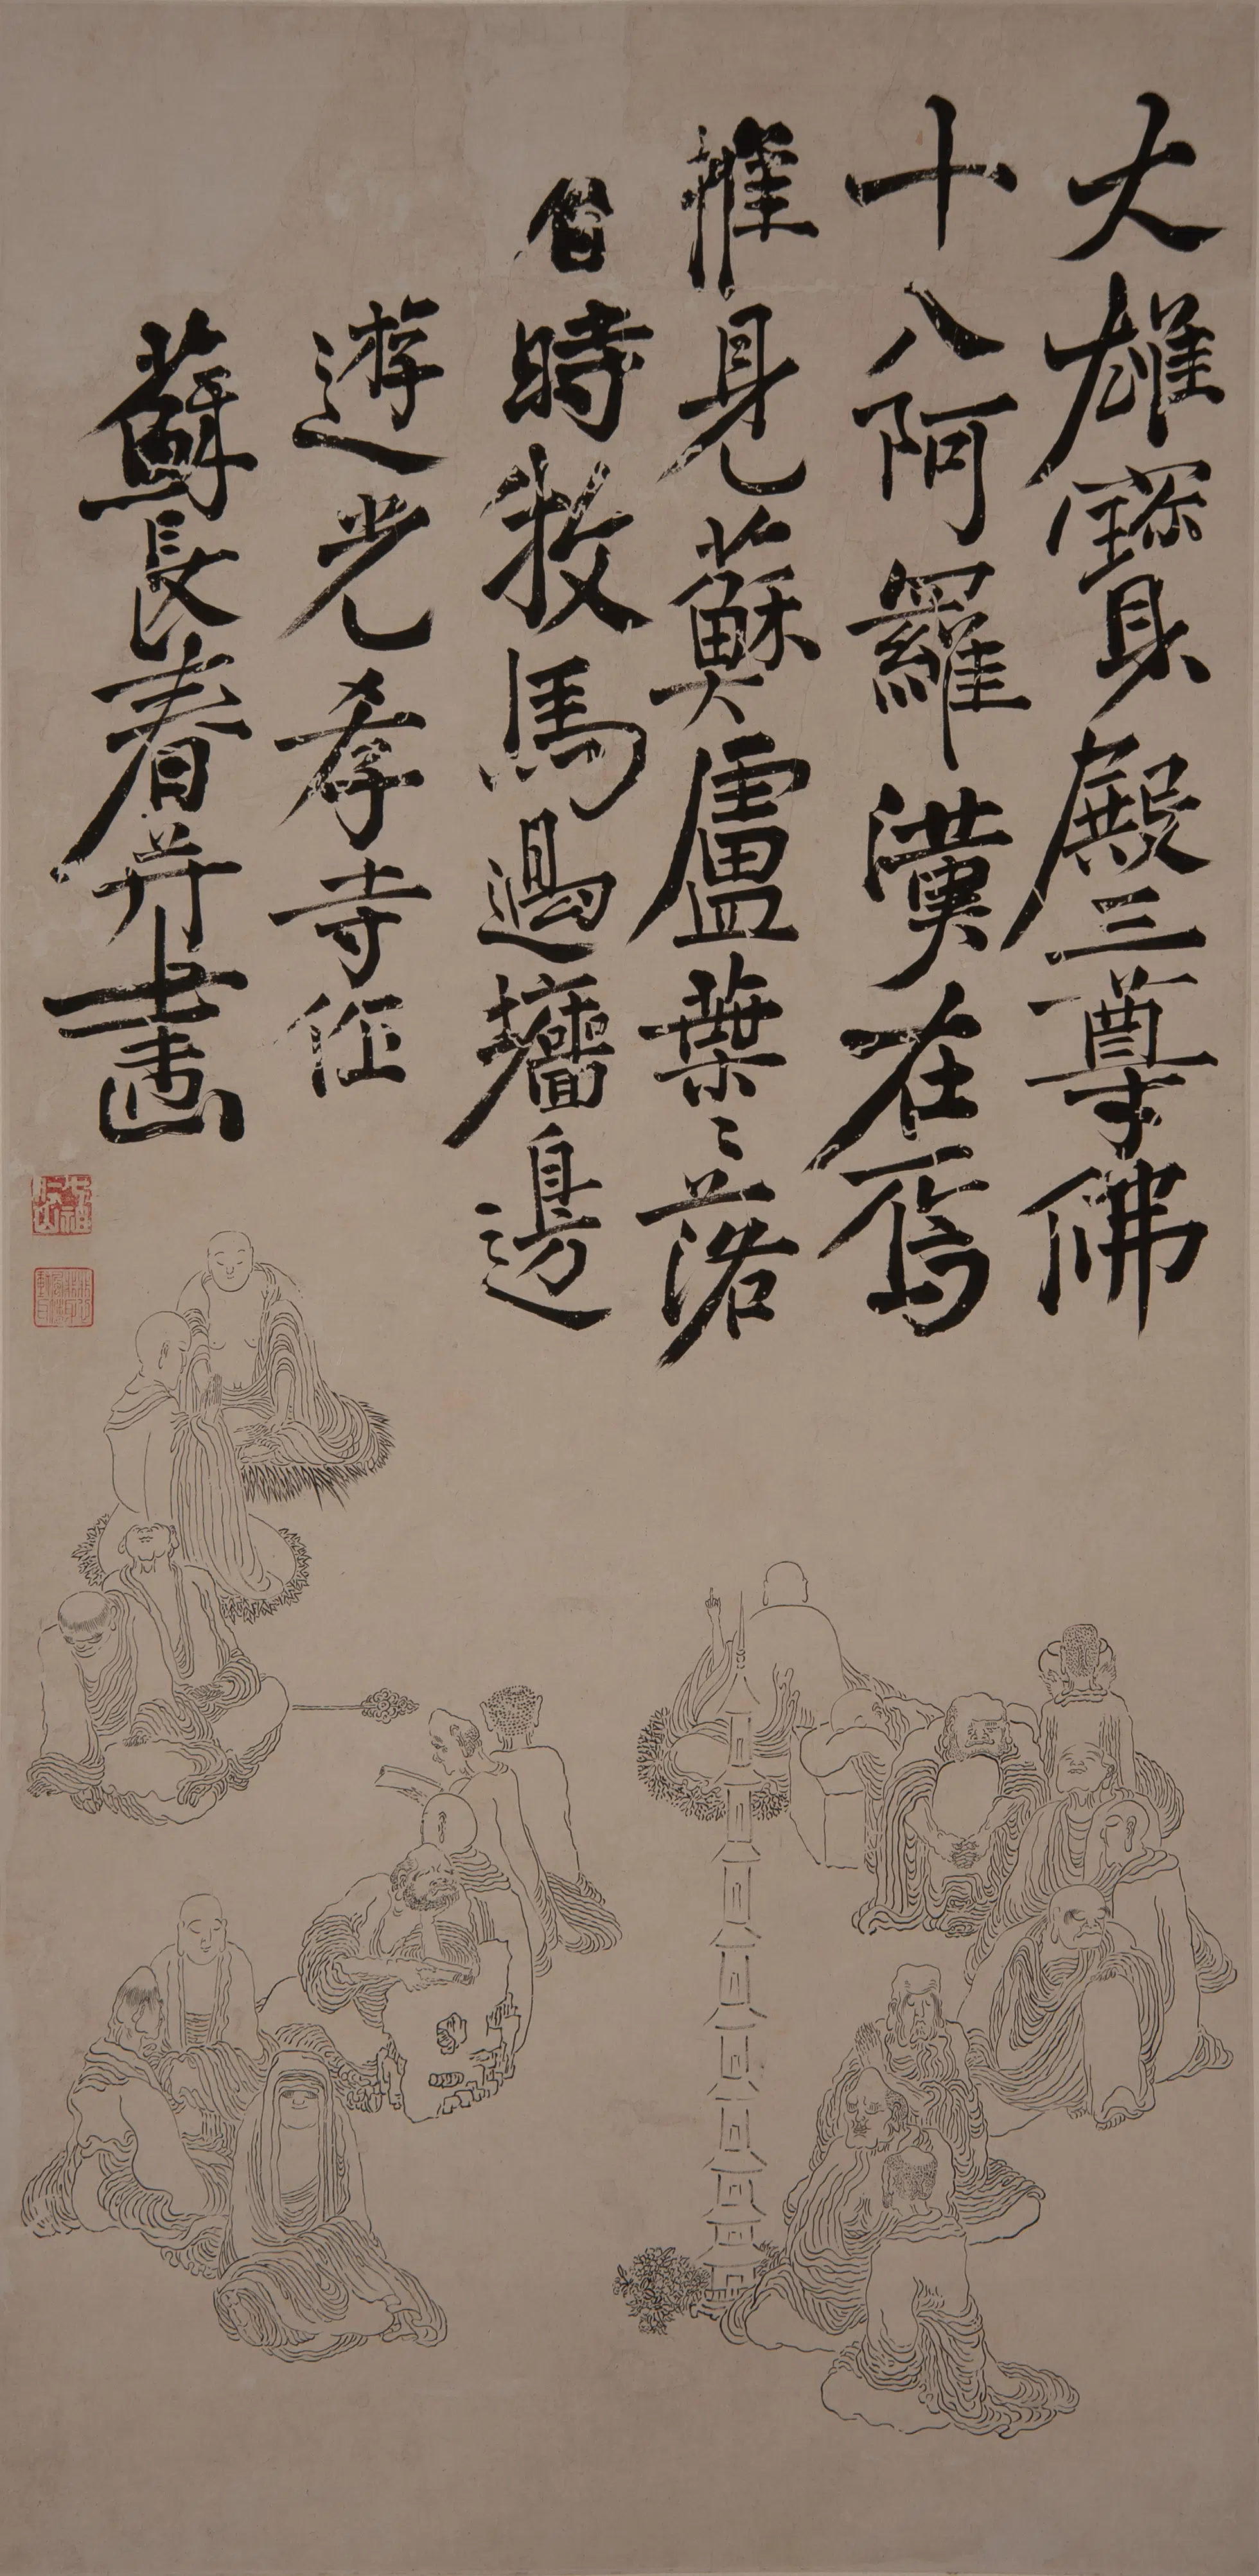 大雄寶殿三尊佛
十八阿羅漢在焉
惟見蘇盧葉〻落
時牧馬過牆邊
遊光孝寺作
蘇長春并畫
七祖仁山